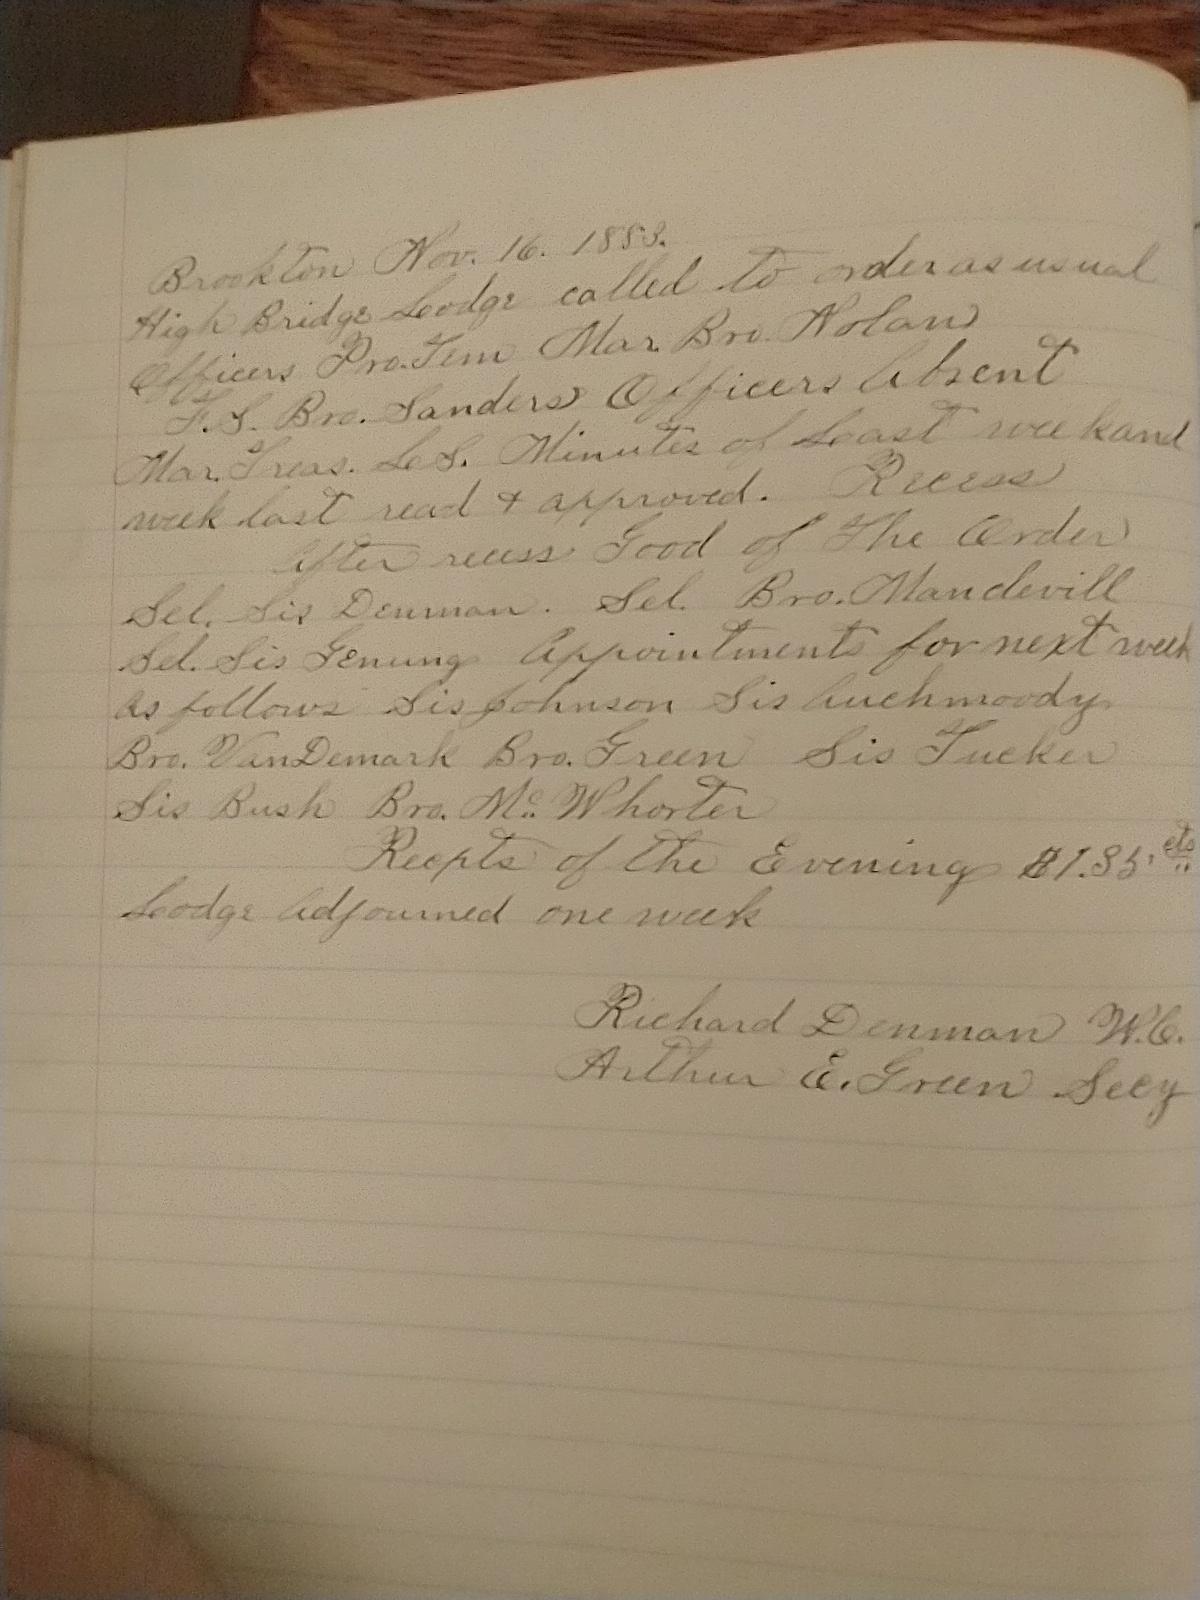 Brookton Nov. 16. 1883.
High Bridge Lodge called to order as usual
Officers Pro. Tem Mar. Bro. Nolan
F.S. Bro. Sanders Officers Absent
Mar. Treas. L.S. Minutes of Least week and
week last read & approved. Recess
After recess Good of The Order
Sel. Sis Denman. Sel. Bro. Mandevill
Sel. Sis Genung Appointments for next week
As follows Sis Johnson Sis Auchmoody
Bro. VanDemark Bro. Green Sis Tucker
Sis Bush Bro. Mc Whorter
Recpts of the Evening $1.35 cts
Lodge Adjourned one week
Richard Denman W.C.
Arthur E. Green Secy